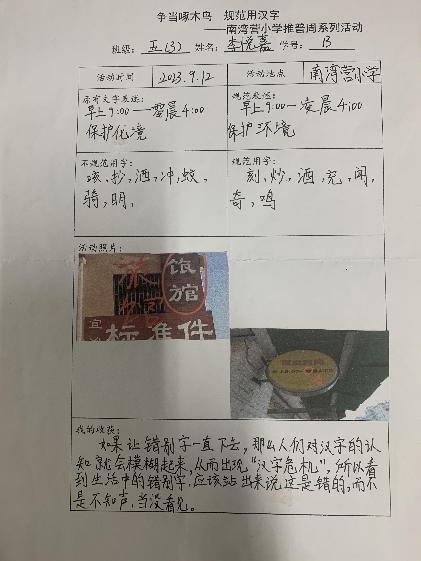 争当啄木鸟 规范用汉字
——南湾营小学推普周系列活动
班级: 五(3) 姓名: 李悦嘉 学号: 13
活动时间 2023.9.12 活动地点 南湾营小学
原有文字表述: 规范表述:
早上9:00—零晨4:00 早上9:00—凌晨4:00
保护化境 保护环境
不规范用字: 规范用字:
咳,抄,洒,冲,蚊, 刻,炒,酒,充,闻,
骑,明, 奇,鸣
活动照片:
饭馆
标准件
我的收获:
如果让错别字一直下去,那么人们对汉字的认
知就会模糊起来,从而出现“汉字危机”,所以看
到生活中的错别字,应该站出来说这是错的,而不
是不知声,当没看见。